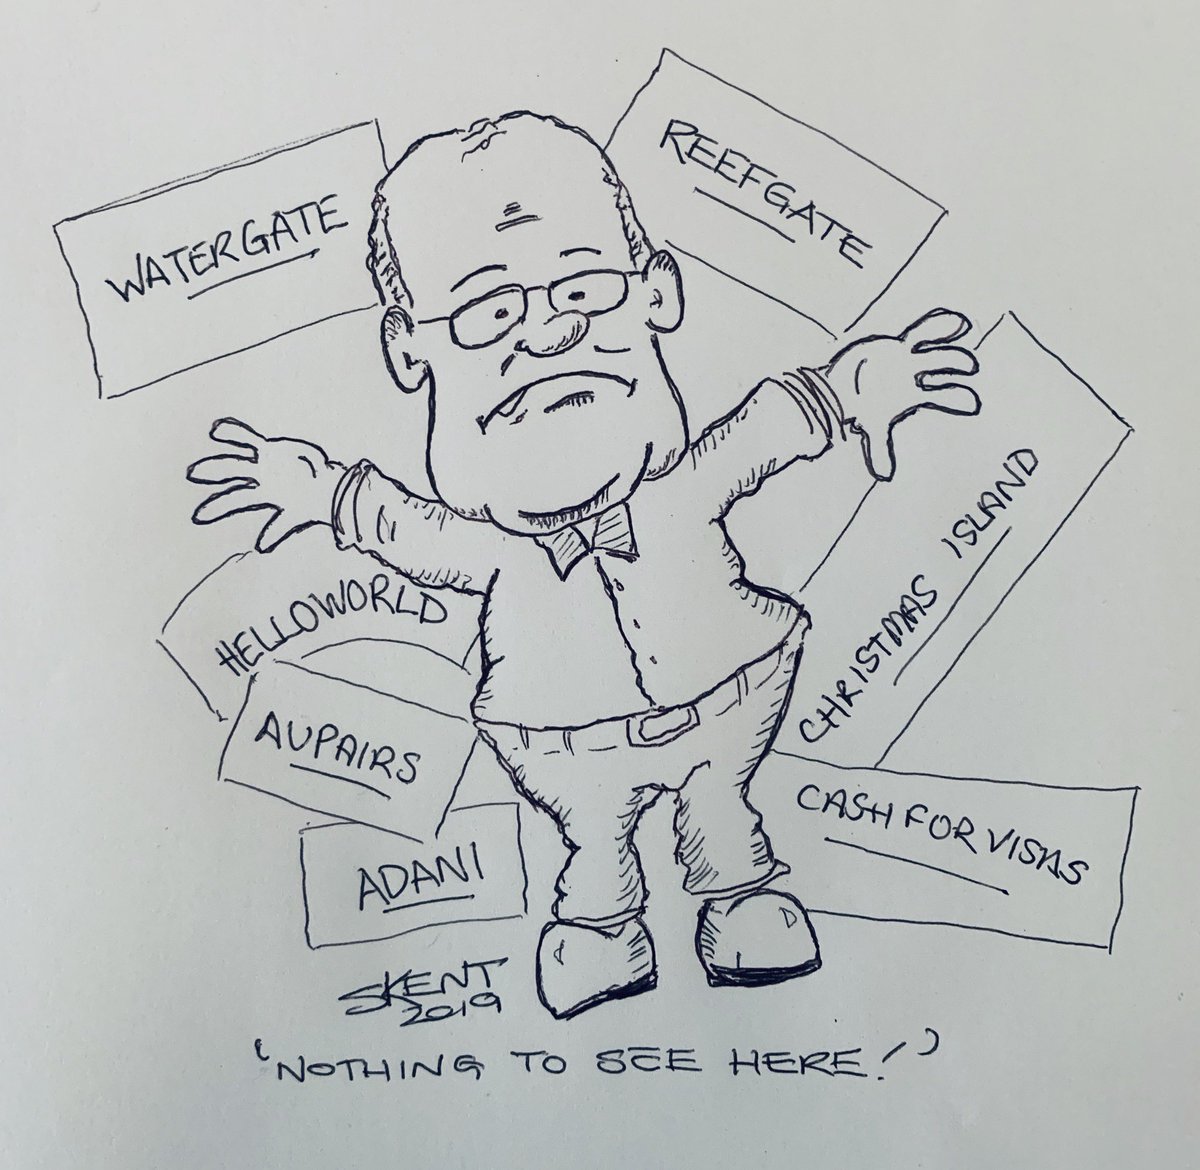 WATERGATE
REEFGATE
HELLOWORLD
CHRISTMAS ISLAND
AUPAIRS
CASH FOR VISAS
ADANI
SKENT
2019
'NOTHING TO SEE HERE!'